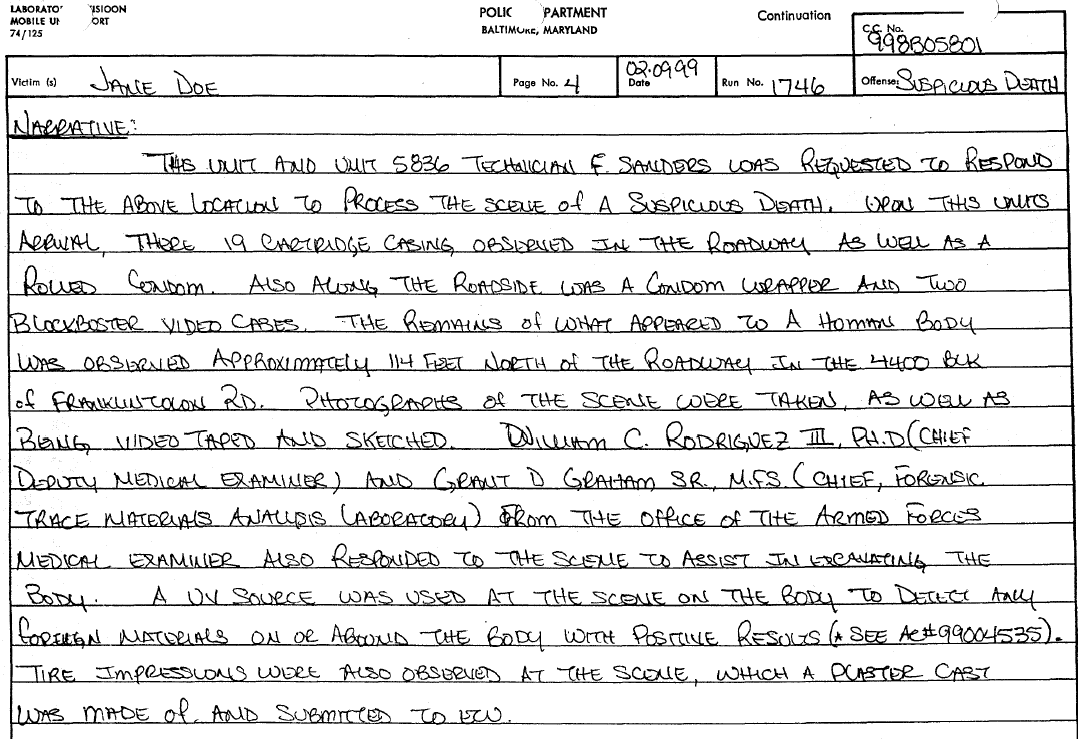 LABORATO ISIOON
MOBILE U ORT
74/125
POLIC PARTMENT
BALTIMORE, MARYLAND
Continuation
C.C. No.
998B05801
Victim (s) JANE DOE
Page No. 4
02.09.99
Date
Run No. 1746
Offense: SUSPICIOUS DEATH
NARRATIVE:
THIS UNIT AND UNIT 5836 TECHNICIAN F. SANDERS WAS REQUESTED TO RESPOND
TO THE ABOVE LOCATION TO PROCESS THE SCENE of A SUSPICIOUS DEATH. UPON THIS UNITS
ARRIVAL, THERE 19 CARTRIDGE CASING OBSERVED IN THE ROADWAY AS WELL AS A
ROLLED CONDOM. ALSO ALONG THE ROADSIDE WAS A CONDOM WRAPPER AND TWO
BLOCKBOSTER VIDEO CASES. THE REMAINS of WHAT APPEARED TO A HUMAN BODY
WAS OBSERVED APPROXIMATELY 114 FEET NORTH of THE ROADWAY IN THE 4400 BLK
of FRANKLINTOLON RD. PHOTOGRAPHS of THE SCENE WERE TAKEN, AS WELL AS
BEING VIDEO TAPED AND SKETCHED. WILLIAM C. RODRIGUEZ III, PH.D (CHIEF
DEPUTY MEDICAL EXAMINER) AND GRANT D GRAHAM SR., M.F.S. (CHIEF, FORENSIC
TRACE MATERIALS ANALYSIS LABORATORY) FROM THE OFFICE of THE ARMED FORCES
MEDICAL EXAMINER ALSO RESPONDED TO THE SCENE TO ASSIST IN EXCAVATING THE
BODY. A UV SOURCE WAS USED AT THE SCENE ON THE BODY TO DETECT ANY
FOREIGN MATERIALS ON OR AROUND THE BODY WITH POSITIVE RESULTS (* SEE AC#99004535).
TIRE IMPRESSIONS WERE ALSO OBSERVED AT THE SCENE, WHICH A PLASTER CAST
WAS MADE of. AND SUBMITTED TO ECU.